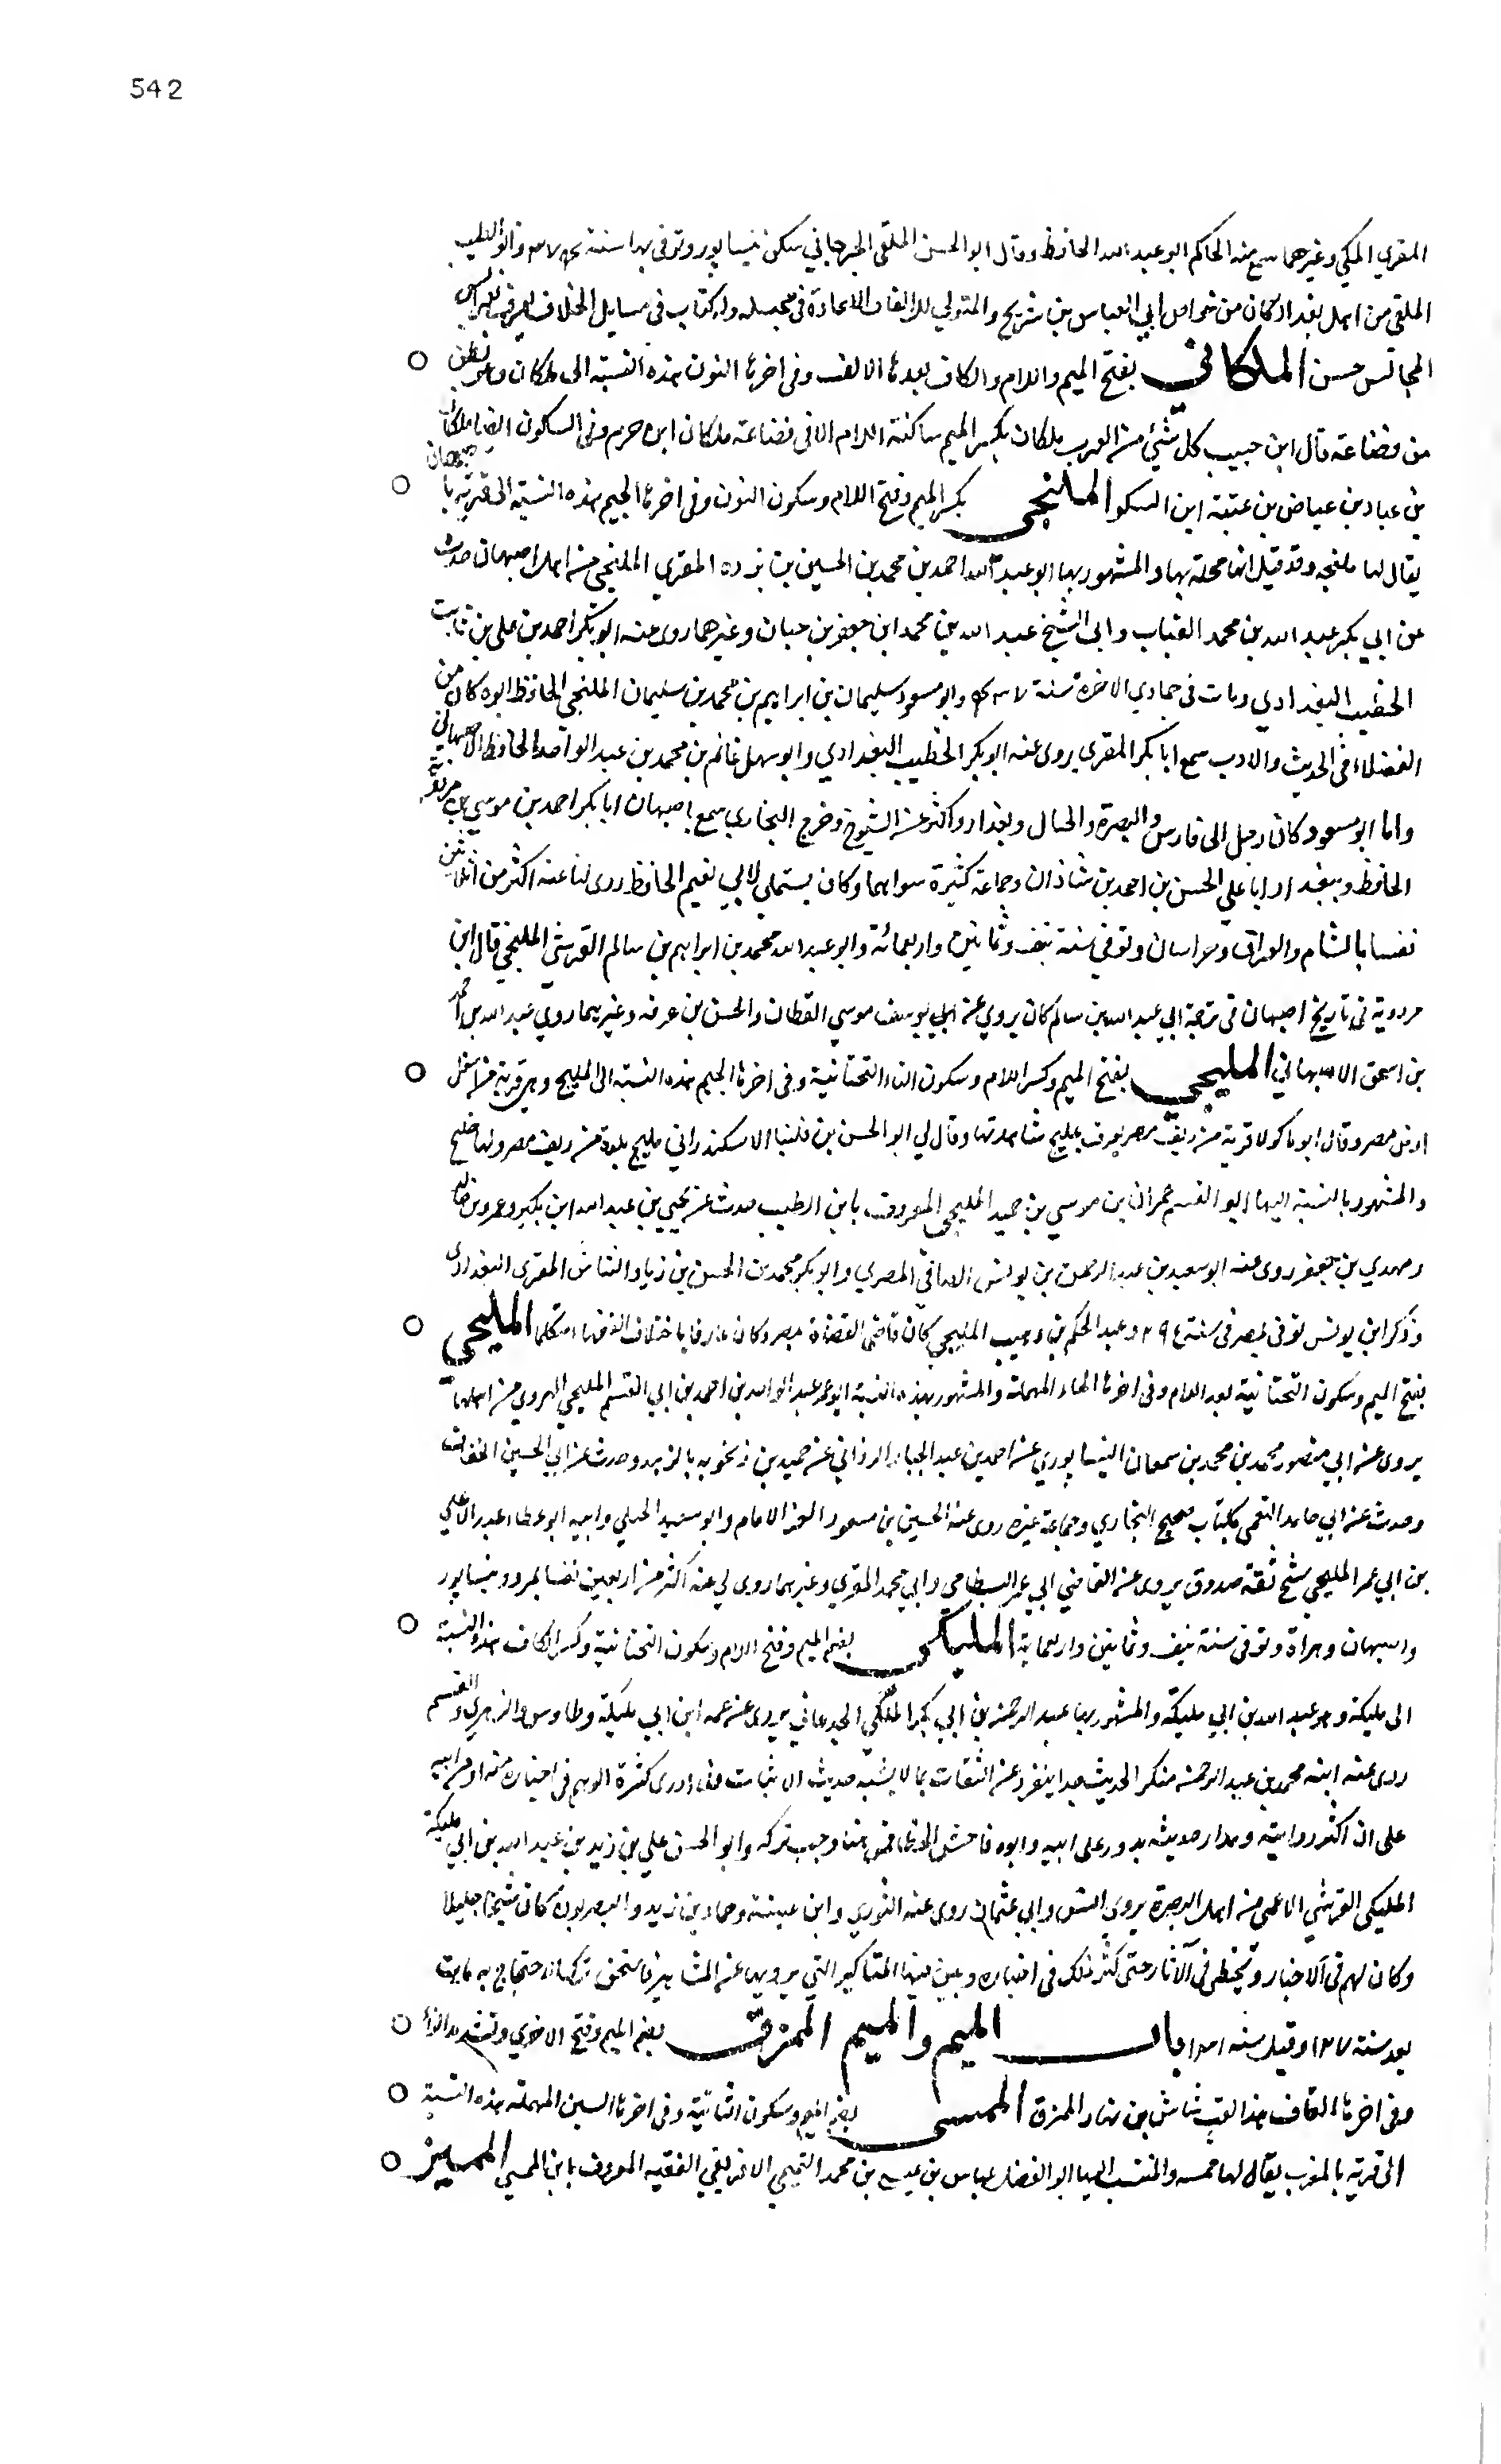 542
المقري المكي وغيرهما سمع منه الحاكم ابو عبد الله الحافظ وقال ابو الحسن الملقي الجرجاني سكن نيسابور وتوفى بها سنة وابو الطيب
الملقي من اهل بغداد كان من خواص ابي العباس بن شريح والمتولي للالقاء للاعادة في مجلسه وله كتاب في مسايل الخلاف
المجالس حسن الملكاني بفتح الميم واللام والكاف بعدها الالف وفى اخرها النون هذه النسبة الى ملكان وهو بطن
من قضاعة قال ابن حبيب كل شيء من العرب ملكان بكسر الميم ساكنة اللام الا في قضاعة ملكان ابن جرم وفى السكون ايضا ملكان
بن عباد بن عياض بن عقبة ابن السكو الملنجي بكسر الميم وفتح اللام وسكون النون وفى اخرها الجيم هذه النسبة الى قرية باصبهان
يقال لها ملنجه وقد قيل انها محلة بها والمشهور بها ابو عبد الله احمد بن محمد بن الحسين بن برده المقري الملنجي من اهل اصبهان حدث
عن ابي بكر عبد الله بن محمد القباب وابى الشيخ عبد الله بن محمد ابن جعفر بن حبان وغيرهما روى عنه ابو بكر احمد بن على بن ثابت
الخطيب البغدادي ومات في جمادي الاخرة سنة وابو مسعود سليمان بن ابراهيم بن محمد بن سليمان الملنجي الحافظ ابوه كان من
الفضلاء فى الحديث والادب سمع ابا بكر المقرى يروى عنه ابو بكر الخطيب البغدادي وابو سهل غانم بن محمد بن عبد الواحد الحافظ الاصبهاني
واما ابو مسعود كان رحل الى فارس والبصرة والجبال وبغداد واكثر عن الشيوخ وخرج البخاري سمع باصبهان ابا بكر احمد بن موسي بن مردويه
الحافظ وببغداد ابا علي الحسن بن احمد بن شاذان وجماعة كثيرة سواهما وكان يستملي لابي نعيم الحافظ روى لنا عنه اكثر من ثلاثين
نفسا بالشام والعراق وخراسان وتوفي سنة نيف وثمانين واربعمائة وابو عبد الله محمد بن ابراهيم بن سالم القرشي الملنجي قال ابن
مردوية في تاريخ اصبهان في ترجمة ابي عبد الله بن سالم كان يروي عن ابي يوسف موسي القطان والحسن بن عرفه وغيرهما روي عبد الله بن احمد
بن اسحق الاصبهاني المليجي بفتح الميم وكسر اللام وسكون الياء التحتانية وفى اخرها الجيم هذه النسبة الى المليج وهى قرية من اسفل
ارض مصر وقال ابو ماكولا قرية من ريف مصر يعرف بمليج شاهدتها وقال لي ابو الحسن بن فلنبا الاسكندراني مليج بلدة من ريف مصر وبها خليج
والمشهور بالنسبة اليها ابو القسم عمران بن موسي بن حميد المليجي المعروف بابن الطيب حدث عن يحيي بن عبد الله ابن بكير وعمرو بن خالد
ومهدي بن جعفر روى عنه ابو سعيد بن عبد الرحمن بن يونس الصدفي المصري وابو بكر محمد بن الحسن بن زياد النقاش المقرى البغدادى
وذكر ابن يونس توفى بمصر فى سنة وعبد الحكم بن وهيب المليجي كان قاضى القضاة بمصر وكان عارفا باختلاف الفقهاء متكلما المليحي
بفتح الميم وسكون التحتانية بعد اللام وفى اخرها الحاء المهملة والمشهور بهذه النسبة ابو عمر عبد الواحد بن احمد بن ابي القسم المليحي الهروي من اهلها
يروى عن ابي منصور محمد بن محمد بن سمعان النيسابوري عن احمد بن عبد الجبار الرذاني عن حميد بن زنجويه بالزهد وحدث عن ابي الحسين الخفاف
وحدث عن ابي حامد النعيمي بكتاب صحيح البخاري وجماعة غيره روى عنه الحسين بن مسعود الفراء الامام وابو سعيد الحنبلي وابنه ابو عطاء عبد الاعلي
بن ابي عمر المليحي شيخ ثقة صدوق يروى عن القاضي ابي عمر البسطامي وابي محمد المقري وغيرهما روى لي عنه اكثر من اربعين نفسا بمرو ونيسابور
واصبهان وهراة وتوفى سنة نيف وثمانين واربعماية المليكي بضم الميم وفتح اللام وسكون التحتانية وكسر الكاف هذه النسبة
الى مليكة وهو عبد الله بن ابي مليكة والمشهور بها عبد الرحمن بن ابي بكر المليكي الجدعاني يروى عن عمه ابن ابي مليكة وطاوس والزهري والقسم
روى عنه ابنه محمد بن عبد الرحمن منكر الحديث جدا ينفرد عن الثقات بما لا يشبه حديث الاثبات فلا ادرى كثرة الوهم في اخباره منه او من ابيه
على ان اكثر روايته ومدار حديثه يدور على ابيه وابوه فاحش الخطا وجب تركه وابو الحسن علي بن زيد بن عبد الله بن ابي مليكة
المليكى القرشي الاعمى من اهل البصرة يروي انس وابي عثمان روى عنه الثوري وابن عيينة وحماد بن زيد والبصريون كان شيخا جليلا
وكان يهم في الاخبار ويخطى في الآثار حتى كثر ذلك فى اخباره وتبين فيها المناكير التي يرويها عن المشاهير فاستحق ترك الاحتجاج به مات
بعد سنة ١٢٧ وقيل سنه ١٣١ باب الميم والميم الممزق بضم الميم وفتح الاخري وتشديد الزاء
وفى اخرها القاف هذا لقب شاش بن نهار الممزق الممسى بضم الميم وسكون الثانية وفى اخرها السين المهملة هذه النسبة
الى قرية بالمغرب يقال لها ممسه والمنتسب اليها ابو الفضل عباس بن عيسى بن محمد التميمي الافريقي الفقيه المعروف بابن الممسي